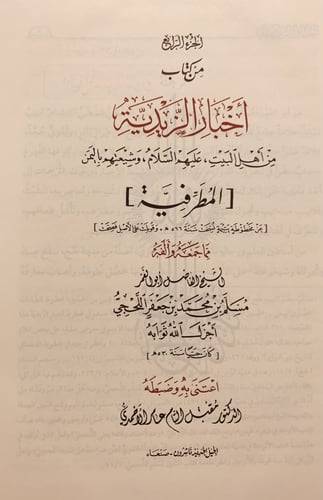 الجزء الرابع
من كتاب
أخبار الزيدية
من أهل البيت، عليهم السلام، وشيعتهم باليمن
[المطرفية]
[عن مخطوطة يمنية نسخت سنة ٥٦٦هـ، وقوبلت على الأصل فصحت]
مما جمعه وألفه
الشيخ الفاضل أبو الغمر
مسلم بن محمد بن جعفر اللحجي
أجزل الله ثوابه
[كان حيا سنة ٥٣٠هـ]
اعتنى به وضبطه
الدكتور مقبل التام عامر الأحمدي
الجيل الجديد ناشرون - صنعاء